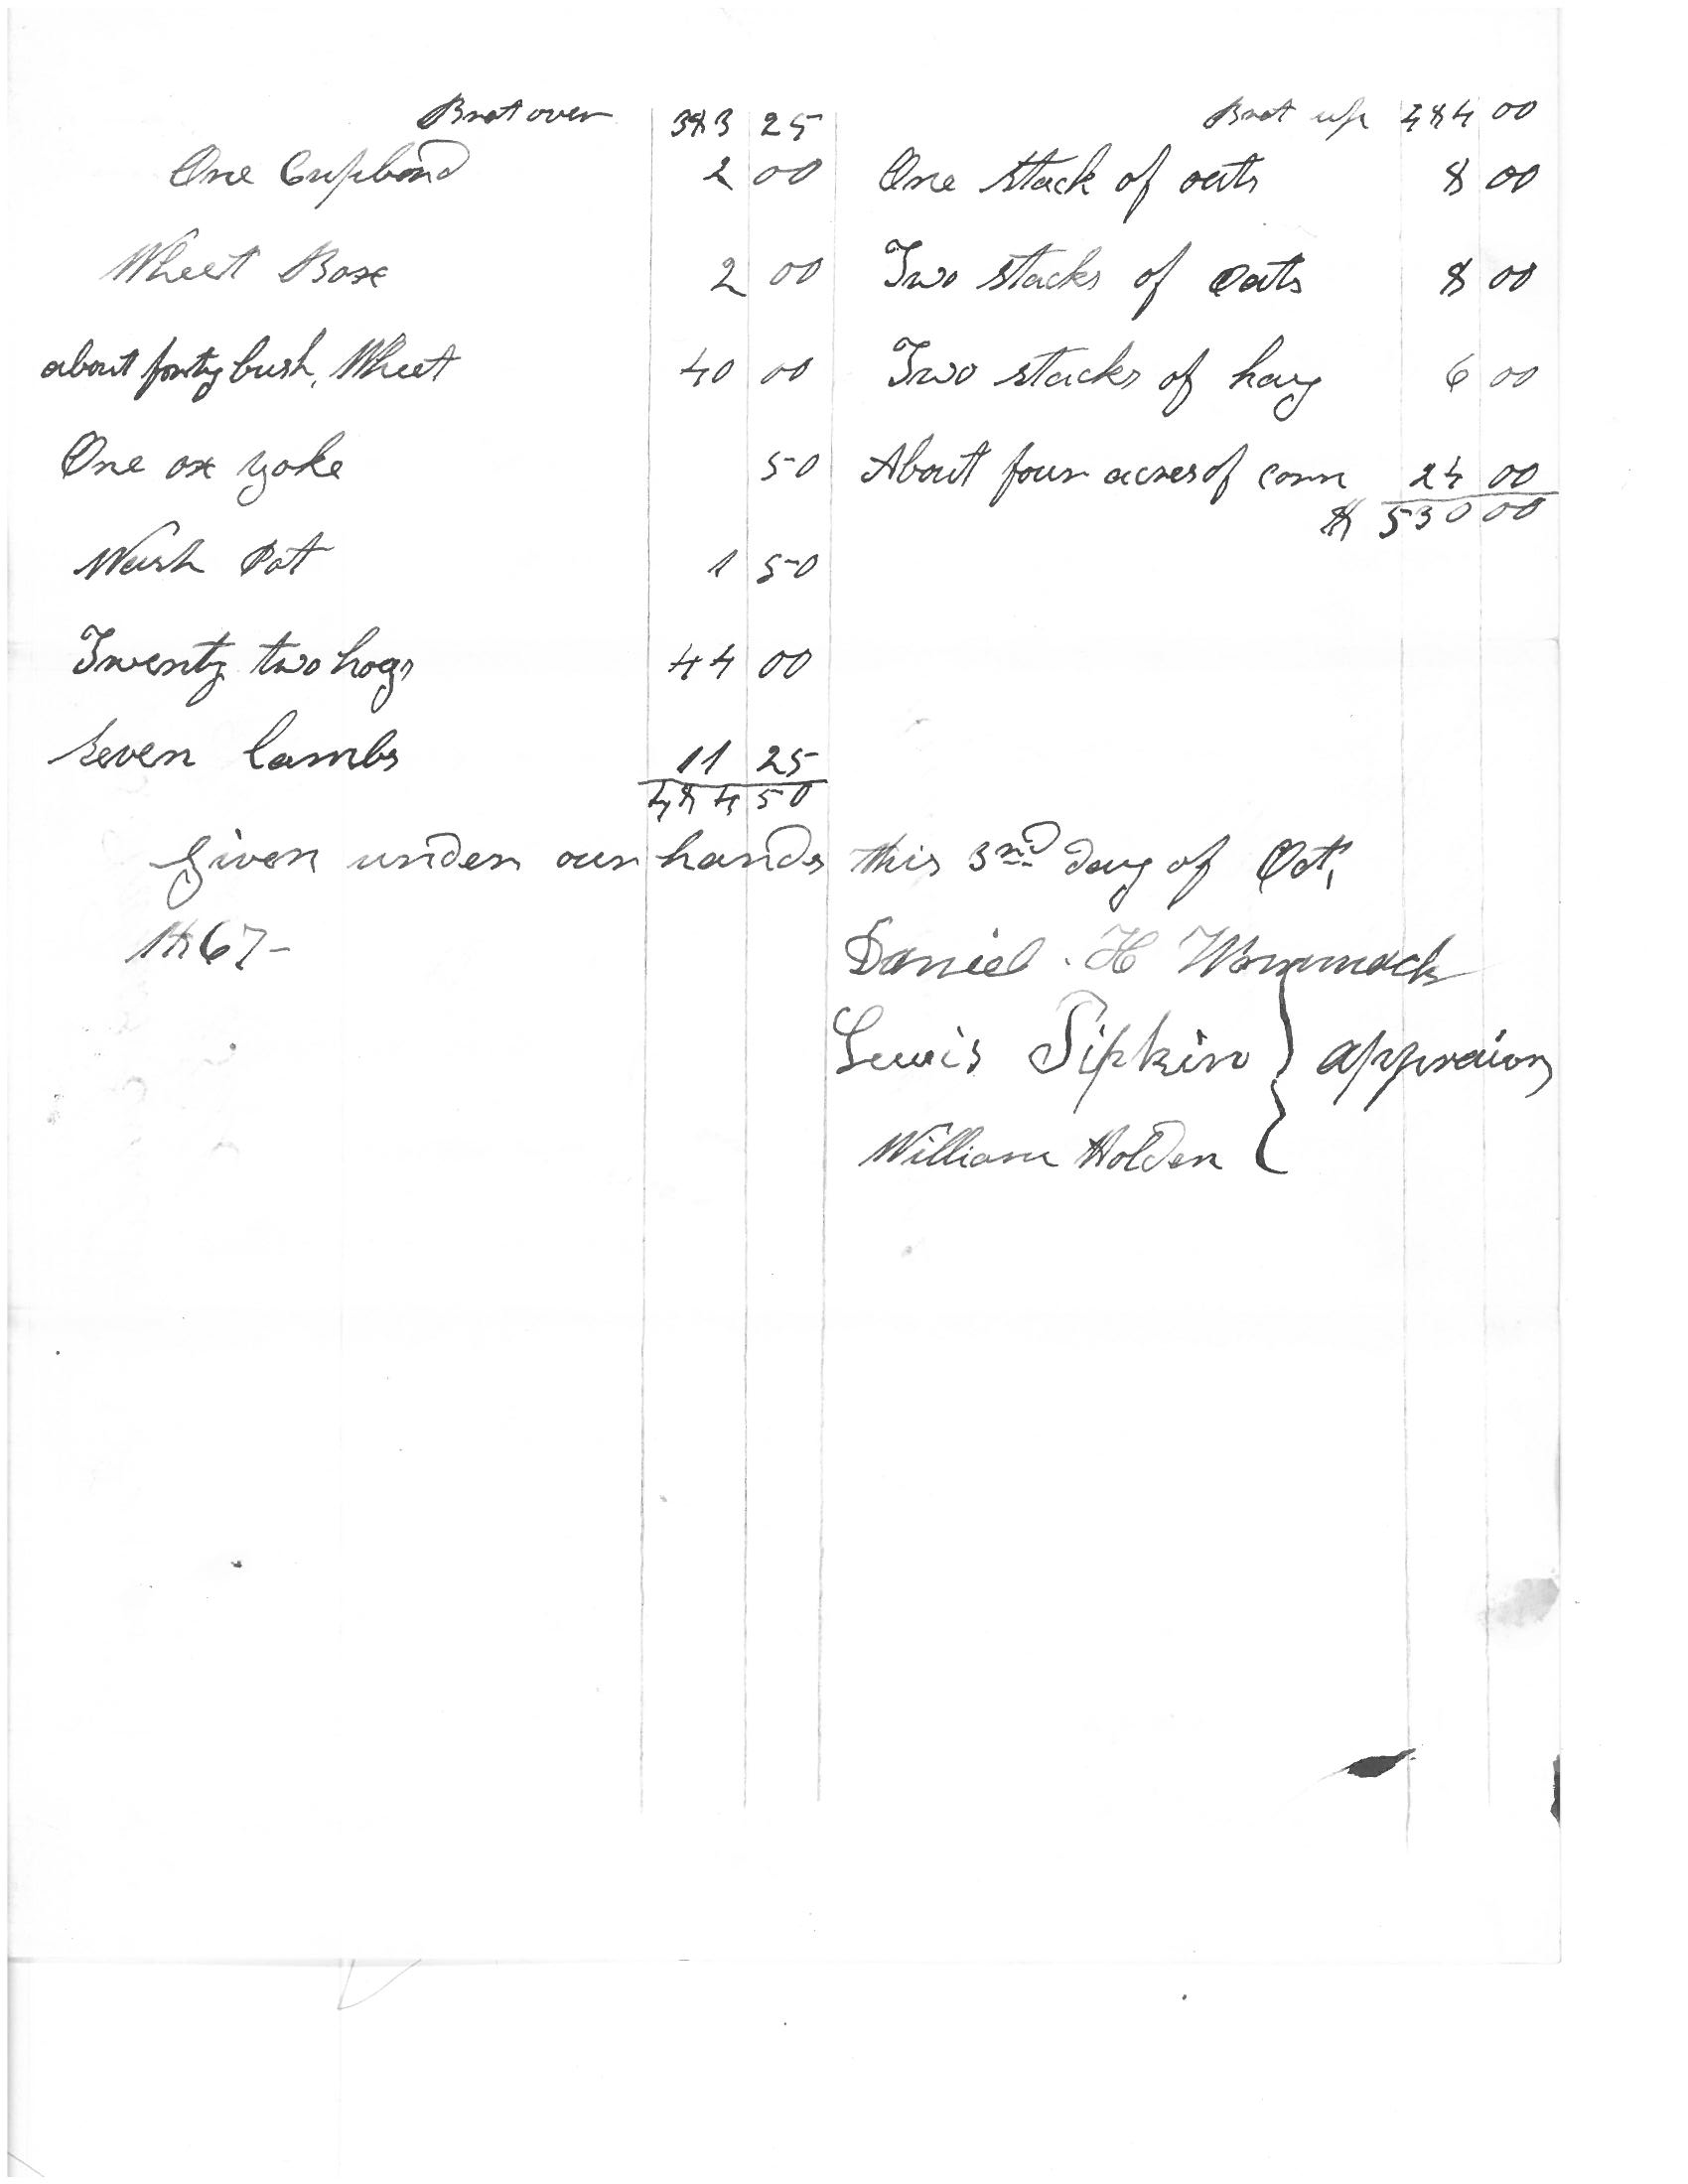 Brot over 383 25
One Cupbord 2 00
Wheet Boxe 2 00
about forty bush, Wheet 40 00
One ox yoke 50
Wash Pot 1 50
Twenty two hogs 44 00
Seven lambs 11 25
484 50
Brot up 484 00
One stack of oats 8 00
Two stacks of Oats 8 00
Two stacks of hay 6 00
About four acres of corn 24 00
$ 530 00
Given under our hands this 3nd day of Oct,
1867-
Daniel . H Wommack
Lewis Sipkin } appraiors
William Holden